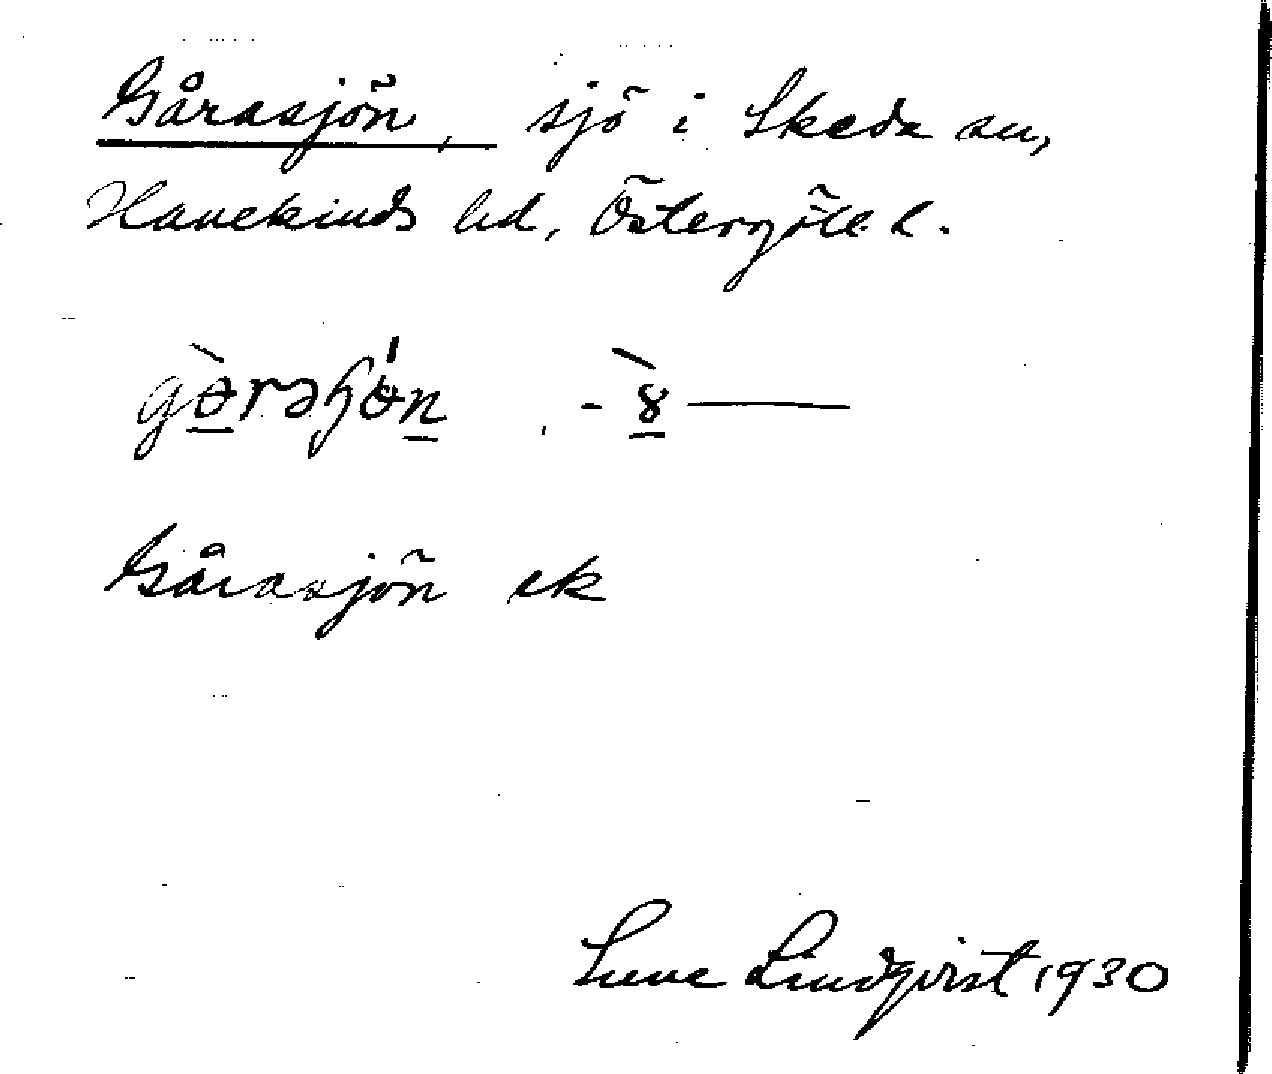 Gårasjön, sjö i Skeda sn,
Hanekinds hd, Östergötl. l.
Gårasjön ek
Sune Lindqvist 1930